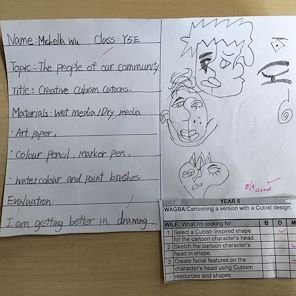 Name: Michelle Wu Class: Y5E
Topic: The people of our community
Title: Creative Cubism Catoons.
Materials: Wet media/Dry media
· Art paper,
· colour pencil, marker pen,
· watercolour and paint brushes
Evaluation
I am getting better in drawing
YEAR 5
WAGBA: Cartooning a version with a Cubist design.
WILF: What I'm looking for B D M
1 Select a Cubist-inspired shape for the cartoon character's head. D
2 Sketch the cartoon character's head in shape.
3 Create facial features on the character's head using Cubism resources and shapes.